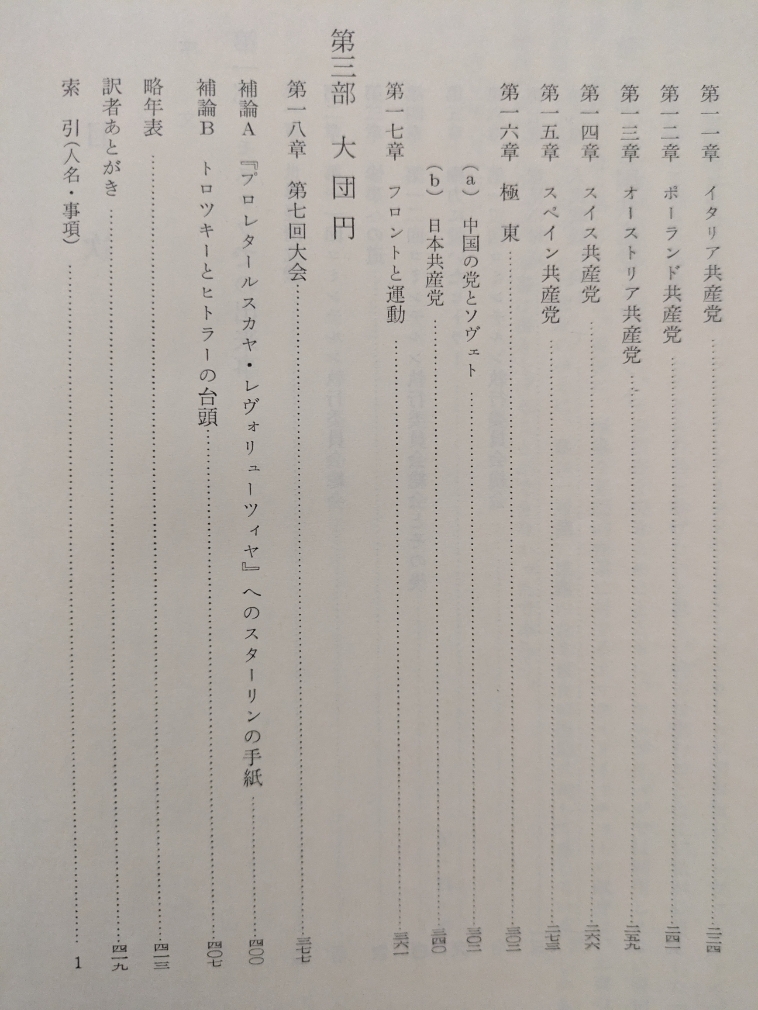 第一一章　イタリア共産党……二二四
第一二章　ポーランド共産党……二四一
第一三章　オーストリア共産党……二五九
第一四章　スイス共産党……二六六
第一五章　スペイン共産党……二七三
第一六章　極　東……三〇一
(a)　中国の党とソヴェト……三〇一
(b)　日本共産党……三四〇
第一七章　フロントと運動……三六一
第三部　大団円
第一八章　第七回大会……三七七
補論A　『プロレタールスカヤ・レヴォリューツィヤ』へのスターリンの手紙……四〇〇
補論B　トロツキーとヒトラーの台頭……四〇七
略年表……四一三
訳者あとがき……四一九
索　引(人名・事項)……1